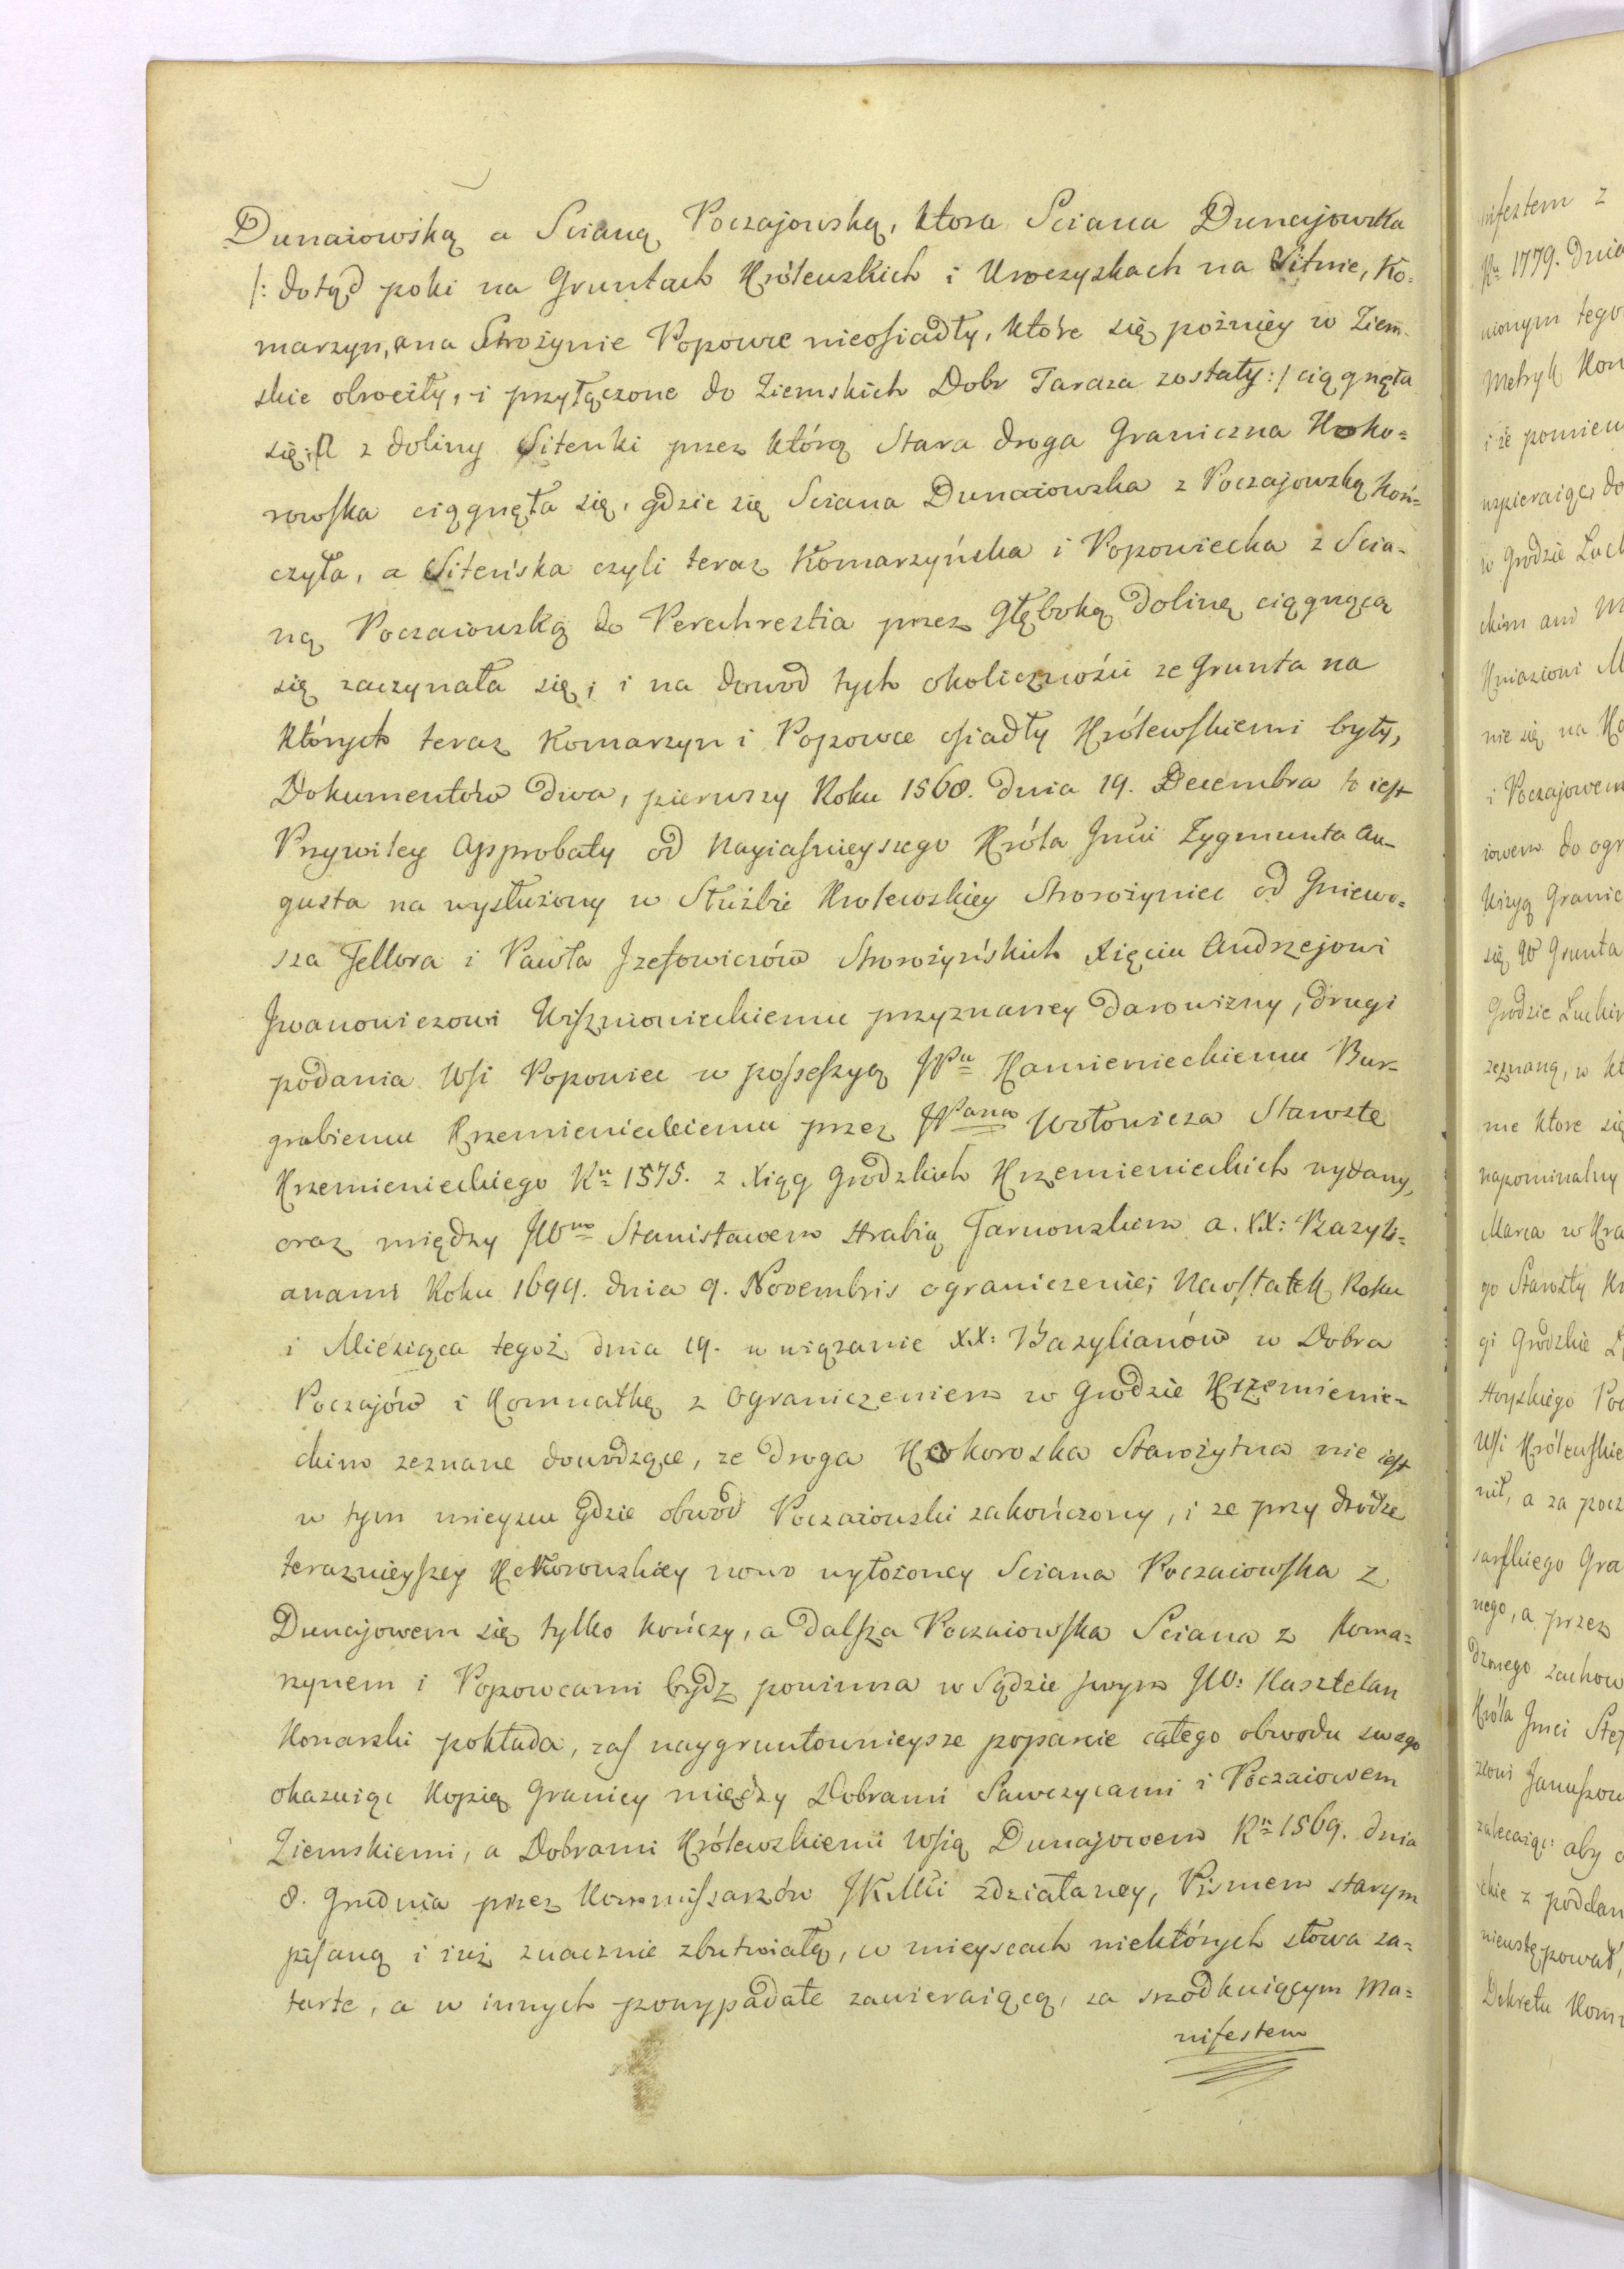 Dunaiowską a Scianą Poczajowską, ktora Sciana Dunajowska
/: dotąd poki na Gruntach Królewskich i Uroczyskach na Sitnie, Ko=
marzyn, a na Strożynie Popowce nieosiadły, które się pożniey w Ziem=
skie obrociły, i przyłączone do Ziemskich Dobr Taraza zostały :/ ciągnęła
się; A z doliny Sitenki przez którą Stara droga Graniczna Koko=
rowska ciągnęła się, gdzie się Sciana Dunaiowska z Poczajowską koń=
czyła, a Siteńska czyli teraz Komarzyńska i Popowiecka z Scia=
ną Poczaiowską do Perechrestia przez Głęboką Dolinę ciągnącą
się zaczynała się; i na dowod tych okoliczności ze Grunta na
których teraz Komarzyn i Popowce osiadły Królewskiemi były,
Dokumentów dwa, pierwszy Roku 1568. dnia 19. Decembra to iest
Przywiley Approbaty od Nayiasnieyszego Króla Jmci Zygmunta Au=
gusta na wysłużony w Służbie Krolewskiey Strorożyniec od Gniewo=
sza Fellora i Pawła Jzefowiczów Strorożyńskich Xięciu Andrzejowi
Jwanowiczowi Wiszniowieckiemu przyznaney Darowizny, drugi
podania Wsi Popowiec w possessyą JPu Kamienieckiemu Bur=
grabiemu Krzemienieckiemu przez JPana Wołowicza Starostę
Krzemienieckiego Ru 1575. z Xiąg Grodzkich Krzemienieckich wydany,
oraz między JWm Stanisławem Hrabią Tarnowskim a XX: Bazyli=
anami Roku 1699. dnia 9. Novembris ograniczenie; Naostatek Roku
i Miesiąca tegoż dnia 19. uwiązanie XX: Bazylianów w Dobra
Poczajów i Komnatkę z Ograniczeniem w Grodzie Krzemienie=
ckim zeznane dowodzące, ze Droga Kokoroska Starożytna nie iest
w tym mieyscu gdzie obwód Poczaiowski zakończony, i ze przy drodze
teraznieyszey Kokorowskiey nowo wyłożoney Sciana Poczaiowska z
Dunajowem się tylko kończy, a dalsza Poczaiowska Sciana z Koma=
rzynem i Popowcami bydz powinna w Sądzie swym JW: Kasztelan
Konarski pokłada, zas naygruntownieysze poparcie całego obwodu swego
okazuiąc Kopią Granicy między Dobrami Sawczycami i Poczaiowem
Ziemskiemi, a Dobrami Królewskiemi Wsią Dunajowem Ru 1569. dnia
8. Grudnia przez Kommissarzów JKMci zdziałaney, Pismem starym
pisaną i iuż znacznie zbutwiałą, w mieyscach niektórych słowa za=
tarte, a w innych powypadałe zawieraiącą, za srzodkuiącym Ma=
nifestem
nifestem z
Ru 1779. Dnia
nionym tego
Metryk Kor
i że pomien
wspieraiąc do
w Grodzie Łuck
ckim ani
Kniaziowi
nie się na
i Poczajowem
iowem do ogr
Wizyą Granic
się go Grunta
Grodzie Łuckim
zeznaną, w
nie ktore się
napominalny
Marca w Kra
go Starosty Kr
gi Grodzkie
Poc
Wsi Królewskie
nił, a za pocz
sarskiego Gra
nego, a przez
dzonego zachow
Króla Jmci Stef
Januszow
zalecaiąc aby
ckie z poddan
nieustępował,
Dekretu Komm